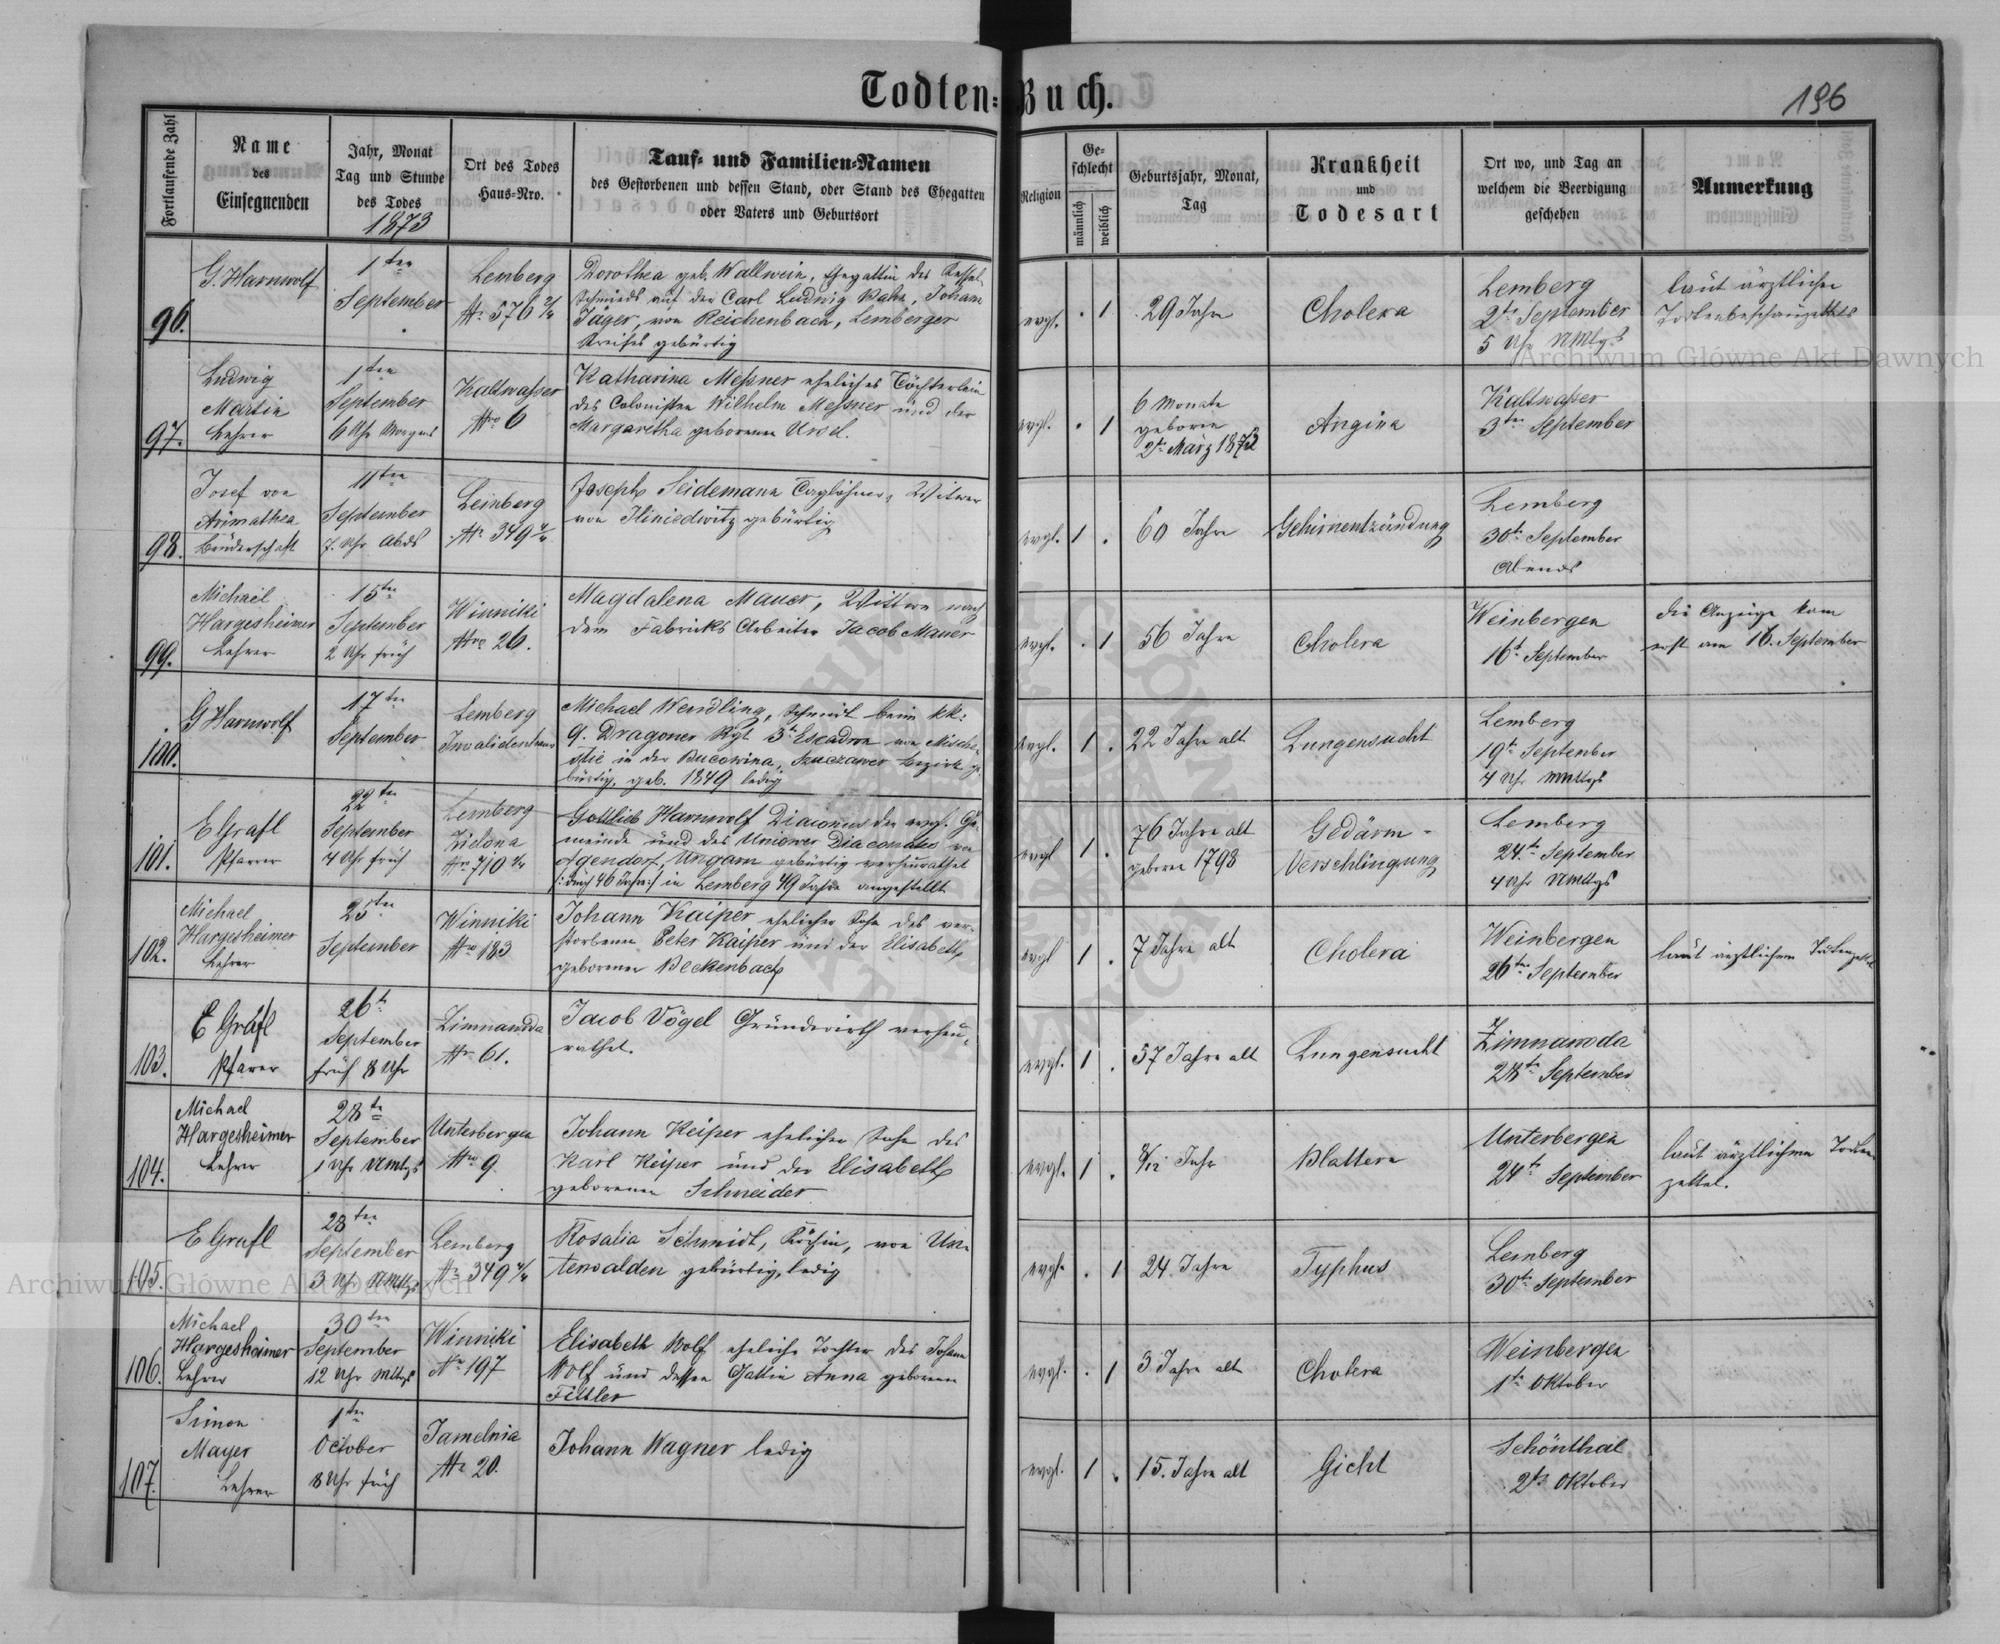 Todten-Buch.
196
Fortlaufende Zahl
Name
des
Einsegnenden
Jahr, Monat
Tag und Stunde
des Todes
1873
Ort des Todes
Haus-Nro.
Tauf- und Familien-Namen
des Gestorbenen und dessen Stand, oder Stand des Ehegatten
oder Vaters und Geburtsort
Religion
Geschlecht
männlich
weiblich
Geburtsjahr, Monat,
Tag
Krankheit
und
Todesart
Ort wo, und Tag an
welchem die Beerdigung
geschehen
Anmerkung
96.
G. Harnwolf
1ten
September
Lemberg
Nr. 576 2/4
Dorothea geb. Wallwein, Ehegattin des Kessel-
schmieds auf der Carl Ludwig Bahn, Johann
Jäger, von Reichenbach, Lemberger
Kreises gebürtig
evgl.
1
29 Jahre
Cholera
Lemberg
2t September
5 Uhr NMtgs
laut ärztlichen
Todtenbeschauzettels
97.
Ludwig
Martin
Lehrer
1ten
September
6 Uhr Morgens
Kaltwasser
Nro 6
Katharina Messner eheliches Töchterlein
des Colonisten Wilhelm Messner und der
Margaretha geborenen Ursel.
evgl.
1
6 Monate
geboren
2t März 1873
Angina
Kaltwasser
3ten September
98.
Josef von
Arimathea
Brüderschaft
11ten
September
7. Uhr Abds
Lemberg
Nr. 349 4/4
Joseph Seidemann Taglöhner, Witwer
von gebürtig
evgl.
1
60 Jahre
Gehirnentzündung
Lemberg
30t September
Abends
99.
Michael
Hargesheimer
Lehrer
15ten
September
2 Uhr früh
Winniki
Nro 26.
Magdalena Mauer, Wittwe nach
dem Fabricks Arbeiter Jacob Mauer
evgl.
1
56 Jahre
Cholera
Weinbergen
16t September
die Anzeige kam
erst am 16. September
100.
G Harnwolf
17ten
September
Lemberg
Invalidenhaus
Michael Wendling, Schmidt beim kk:
9. Dragoner Rgt 3t Escadron von
in der Bucowina, Suczawer Bezirk ge-
bürtig, geb. 1849 ledig
evgl.
1
22 Jahre alt
Lungensucht
Lemberg
19t September
4 Uhr NMttgs
101.
E Grafl
Pfarrer
22ten
September
4 Uhr früh
Lemberg
Zielona
Nr. 710 2/4
Gottlieb Harnwolf Diaconus der evgl. Ge-
meinde und des Unioner Diaconates von
Agendorf, Ungarn gebürtig verheurathet
/: durch 46 Jahre :/ in Lemberg 49 Jahre angestellt
evgl
1
76 Jahre alt
geboren 1798
Gedärm-
Verschlingung
Lemberg
24t September
4 Uhr NMttgs
102.
Michael
Hargesheimer
Lehrer
25ten
September
Winniki
Nro 183
Johann Kaiper ehelicher Sohn des ver-
storbenen Peter Kaiper und der Elisabeth
geborenen Beckenbach
evgl
1
7 Jahre alt
Cholera
Weinbergen
26ten September
laut ärztlichem Todtenzettel
103.
E Gráfl
Pfarrer
26t
September
früh 8 Uhr
Zimnawoda
Nr. 61.
Jacob Vögel Grundwirth verheu-
rathet.
evgl.
1
57 Jahre alt
Lungensucht
Zimnawoda
28t September
104.
Michael
Hargesheimer
Lehrer
28te
September
1 Uhr NMtgs
Unterbergen
Nro 9.
Johann Keiper ehelicher Sohn des
Karl Keiper und der Elisabeth
geborenen Schneider
evgl.
1
8/12 Jahr
Blattern
Unterbergen
24t September
laut ärztlichem Todten-
zettel.
105.
E Grafl
28ten
September
3 Uhr NMttgs
Lemberg
Nr. 349 4/4
Rosalia Schmidt, Köchin, von Un-
terwalden gebürtig, ledig
evgl.
1
24. Jahre
Typhus
Lemberg
30t September
106.
Michael
Hargesheimer
Lehrer
30ten
September
12 Uhr Mttgs
Winniki
Nr 197
Elisabeth Wolf eheliche Tochter des Johann
Wolf und dessen Gattin Anna geborenen
Fittler
evgl.
1
3 Jahre alt
Cholera
Weinbergen
1t Oktober
107.
Simon
Mayer
Lehrer
1ten
October
8 Uhr früh
Jamelnia
Nr 20.
Johann Wagner ledig
evgl.
1
15. Jahre alt
Gicht
Schönthal
2t Oktober
Archiwum Główne Akt Dawnych
Archiwum Główne Akt Dawnych